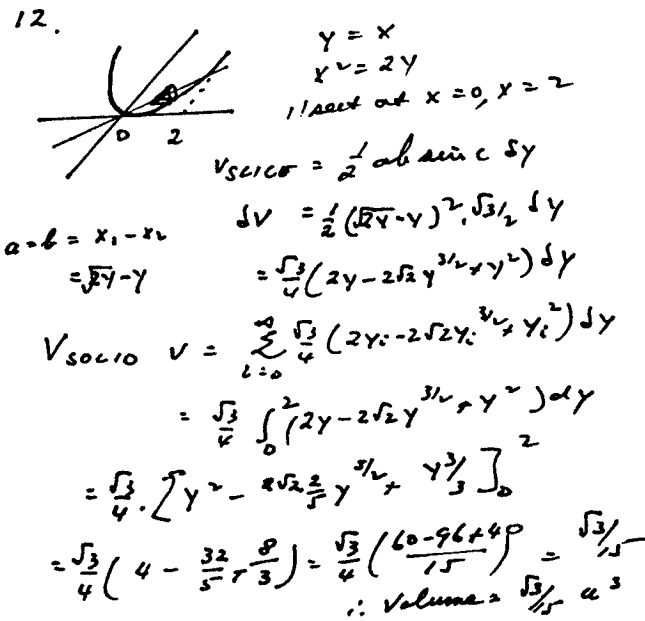 12.
y = x
x² = 2y
i/sect at x = 0, x = 2
0 2
V_SLICE = 1/2 ab sin C δy
δV = 1/2 (√2y - y)². √3/2 δy
a = b = x₁ - x₂
= √2y - y
= √3/4 (2y - 2√2 y^(3/2) + y²) δy
V_SOLID V = ∞ Σ i=0 √3/4 (2yᵢ - 2√2 yᵢ^(3/2) + yᵢ²) δy
= √3/4 ∫₀² (2y - 2√2 y^(3/2) + y²) dy
= √3/4 . [y² - 2√2 2/5 y^(5/2) + y³/3]₀²
= √3/4 (4 - 32/5 + 8/3) = √3/4 (60-96+40/15) = √3/15
∴ Volume = √3/15 u³